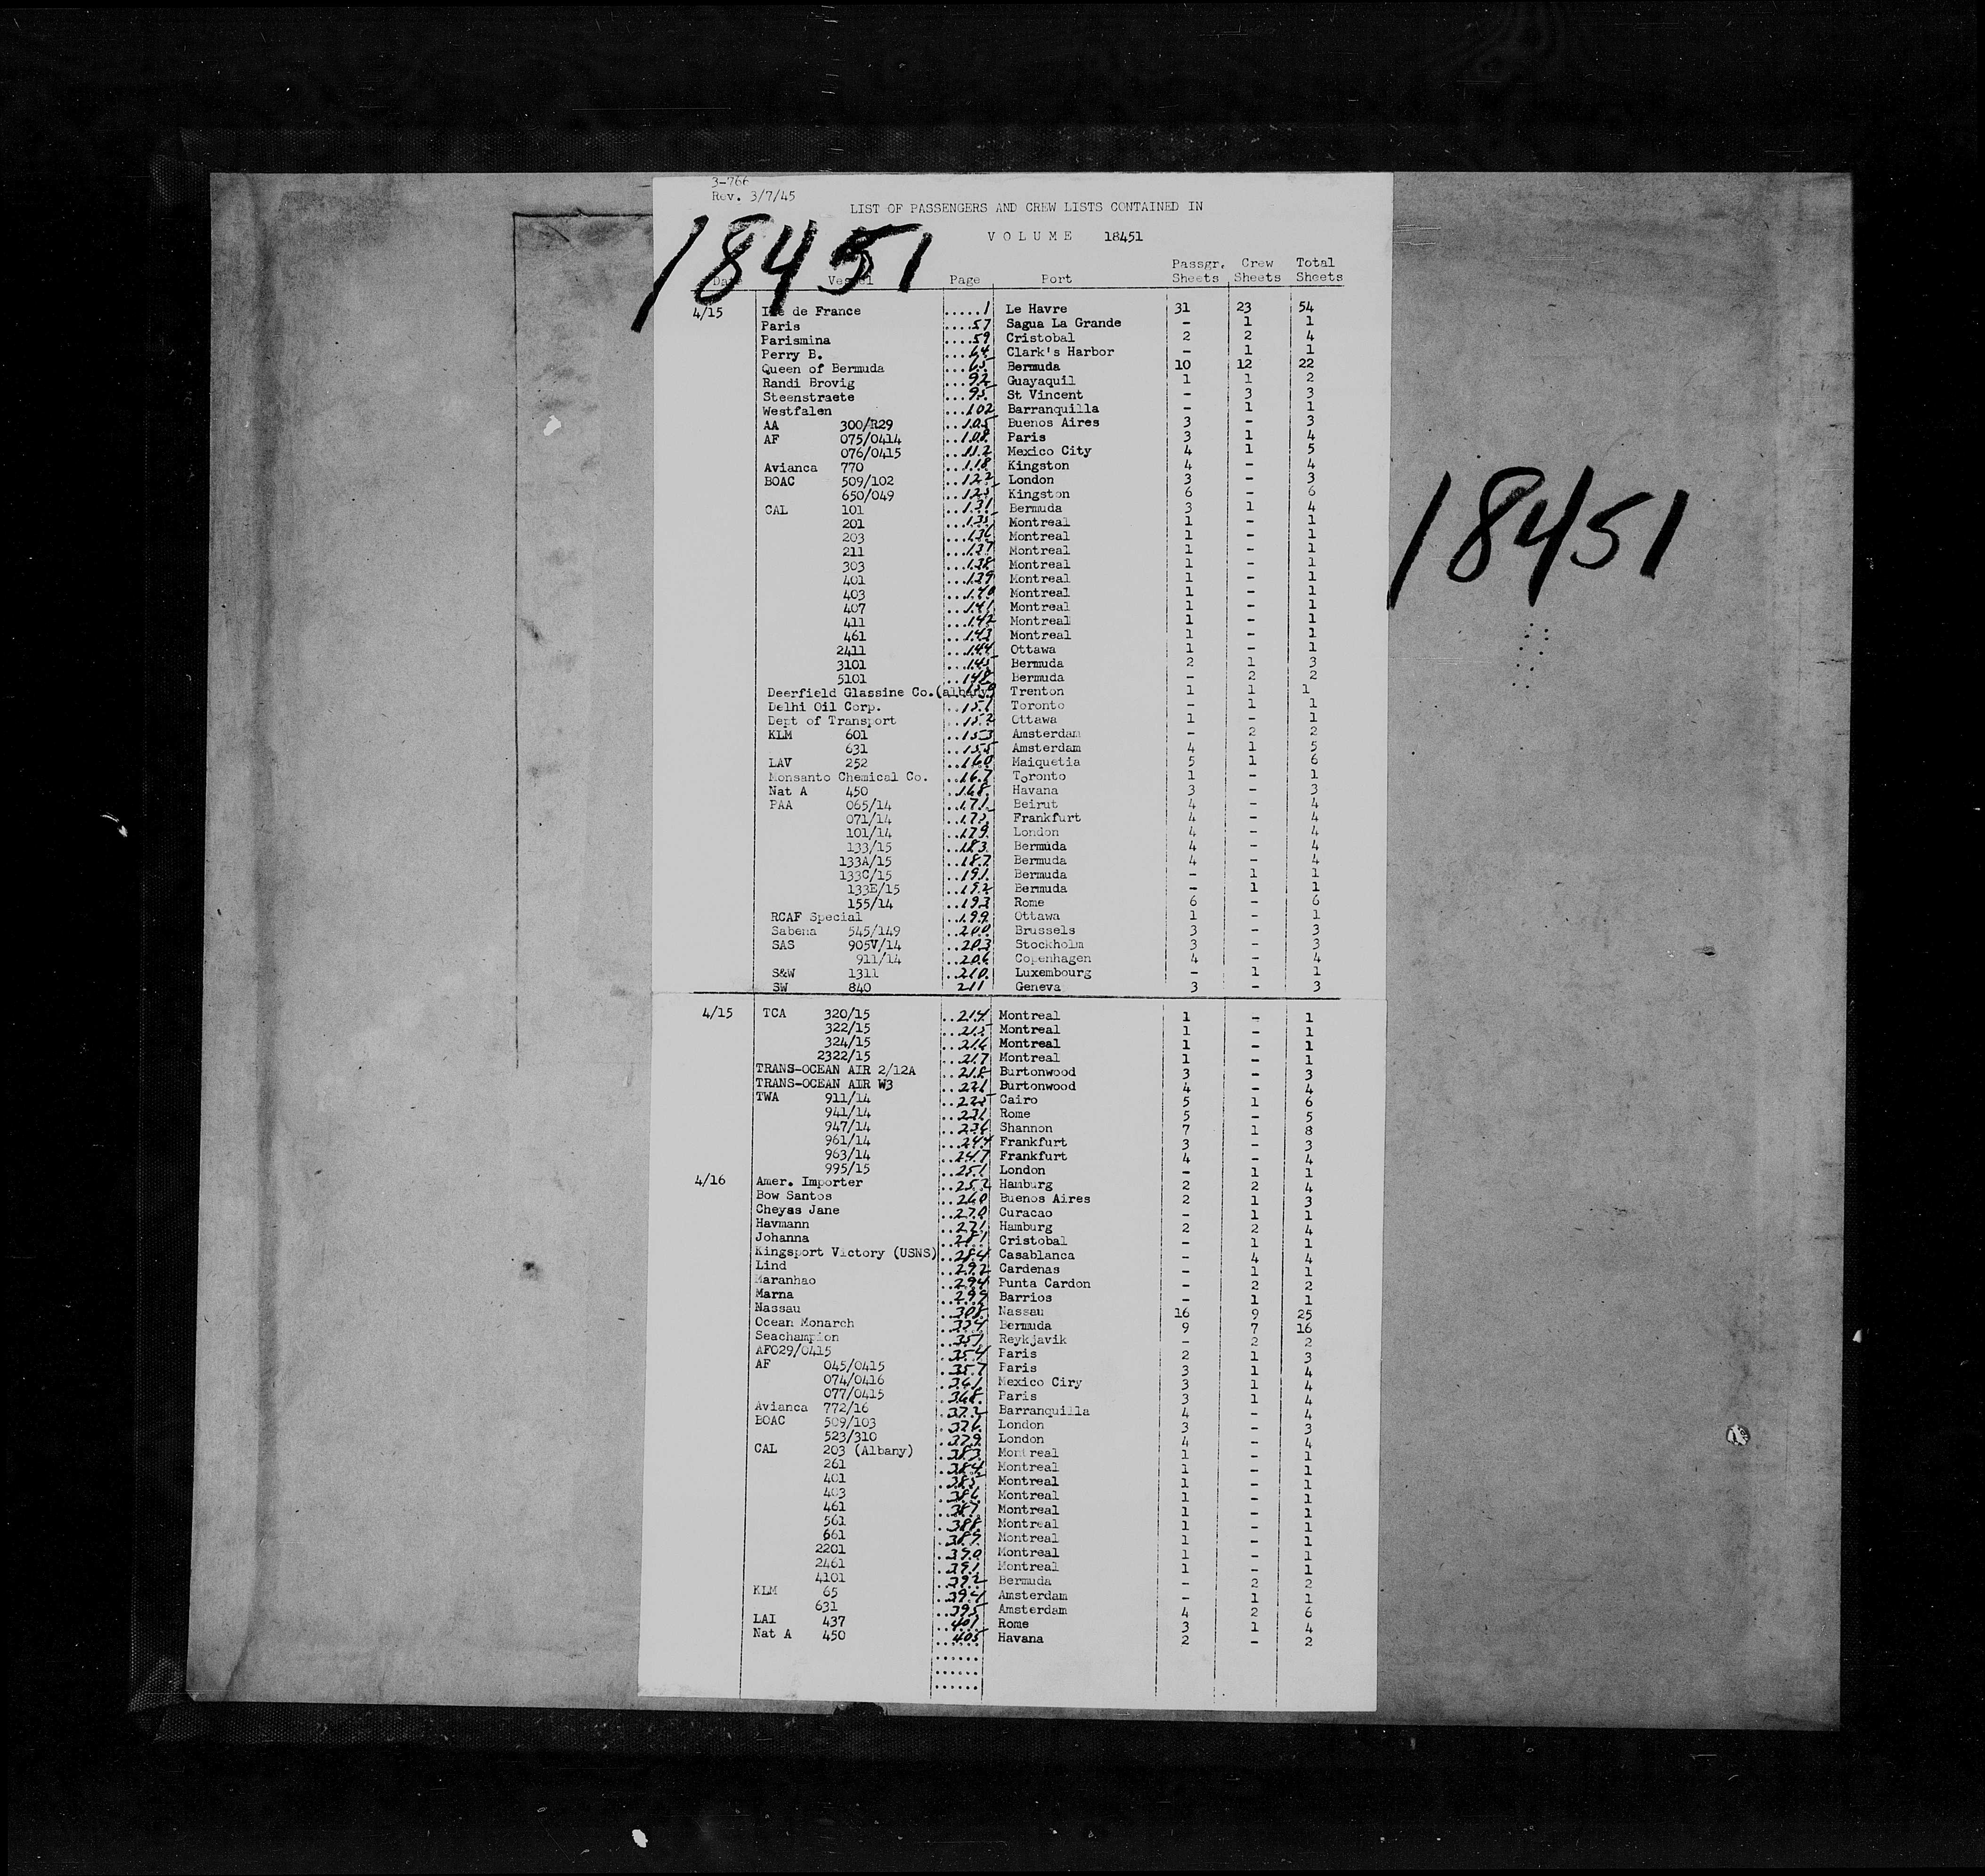 3-766
Rev. 3/7/45
LIST OF PASSENGERS AND CREW LISTS CONTAINED IN
VOLUME 18451
18451
Date Vessel Page Port Passgr. Sheets Crew Sheets Total Sheets
4/15 Ile de France .....1 Le Havre 31 23 54
Paris ....57 Sagua La Grande - 1 1
Parismina ....59 Cristobal 2 2 4
Perry B. ....64 Clark's Harbor - 1 1
Queen of Bermuda ...65 Bermuda 10 12 22
Randi Brovig ...92 Guayaquil 1 1 2
Steenstraete ...95 St Vincent - 3 3
Westfalen ...102 Barranquilla - 1 1
AA 300/R29 ...105 Buenos Aires 3 - 3
AF 075/0414 ...108 Paris 3 1 4
076/0415 ...112 Mexico City 4 1 5
Avianca 770 ...118 Kingston 4 - 4
BOAC 509/102 ...122 London 3 - 3
650/049 ...125 Kingston 6 - 6
CAL 101 ...131 Bermuda 3 1 4
201 ...135 Montreal 1 - 1
203 ...136 Montreal 1 - 1
211 ...137 Montreal 1 - 1
303 ...138 Montreal 1 - 1
401 ...139 Montreal 1 - 1
403 ...140 Montreal 1 - 1
407 ...141 Montreal 1 - 1
411 ...142 Montreal 1 - 1
461 ...143 Montreal 1 - 1
2411 ...144 Ottawa 1 - 1
3101 ...145 Bermuda 2 1 3
5101 ...148 Bermuda - 2 2
Deerfield Glassine Co.(albany) Trenton 1 1 1
Delhi Oil Corp. ..151 Toronto - 1 1
Dept of Transport ..152 Ottawa 1 - 1
KLM 601 ..153 Amsterdam - 2 2
631 ..155 Amsterdam 4 1 5
LAV 252 ..160 Maiquetia 5 1 6
Monsanto Chemical Co. ..167 Toronto 1 - 1
Nat A 450 ..168 Havana 3 - 3
PAA 065/14 ..171 Beirut 4 - 4
071/14 ..175 Frankfurt 4 - 4
101/14 ..179 London 4 - 4
133/15 ..183 Bermuda 4 - 4
133A/15 ..187 Bermuda 4 - 4
133C/15 ..191 Bermuda - 1 1
133E/15 ..192 Bermuda - 1 1
155/14 ..193 Rome 6 - 6
RCAF Special ..199 Ottawa 1 - 1
Sabena 545/149 ..200 Brussels 3 - 3
SAS 905V/14 ..203 Stockholm 3 - 3
911/14 ..206 Copenhagen 4 - 4
S&W 1311 ..210 Luxembourg - 1 1
SW 840 211 Geneva 3 - 3
4/15 TCA 320/15 ..214 Montreal 1 - 1
322/15 ..215 Montreal 1 - 1
324/15 ..216 Montreal 1 - 1
2322/15 ..217 Montreal 1 - 1
TRANS-OCEAN AIR 2/12A ..218 Burtonwood 3 - 3
TRANS-OCEAN AIR W3 ..221 Burtonwood 4 - 4
TWA 911/14 ..225 Cairo 5 1 6
941/14 ..231 Rome 5 - 5
947/14 ..236 Shannon 7 1 8
961/14 ..244 Frankfurt 3 - 3
963/14 ..247 Frankfurt 4 - 4
995/15 ..251 London - 1 1
4/16 Amer. Importer ..252 Hamburg 2 2 4
Bow Santos ..260 Buenos Aires 2 1 3
Cheyas Jane ..270 Curacao - 1 1
Havmann ..271 Hamburg 2 2 4
Johanna ..281 Cristobal - 1 1
Kingsport Victory (USNS) ..284 Casablanca - 4 4
Lind ..292 Cardenas - 1 1
Maranhao ..294 Punta Cardon - 2 2
Marna ..299 Barrios - 1 1
Nassau ..308 Nassau 16 9 25
Ocean Monarch ..334 Bermuda 9 7 16
Seachampion ..351 Reykjavik - 2 2
AF029/0415 ..354 Paris 2 1 3
AF 045/0415 ..357 Paris 3 1 4
074/0416 ..361 Mexico Ciry 3 1 4
077/0415 ..368 Paris 3 1 4
Avianca 772/16 ..372 Barranquilla 4 - 4
BOAC 509/103 ..376 London 3 - 3
523/310 ..379 London 4 - 4
CAL 203 (Albany) ..383 Montreal 1 - 1
261 ..384 Montreal 1 - 1
401 ..385 Montreal 1 - 1
403 ..386 Montreal 1 - 1
461 ..387 Montreal 1 - 1
561 ..388 Montreal 1 - 1
661 ..389 Montreal 1 - 1
2201 ..390 Montreal 1 - 1
2461 ..391 Montreal 1 - 1
4101 ..392 Bermuda - 2 2
KLM 65 ..394 Amsterdam - 1 1
631 ..395 Amsterdam 4 2 6
LAI 437 ..401 Rome 3 1 4
Nat A 450 ..405 Havana 2 - 2
18451